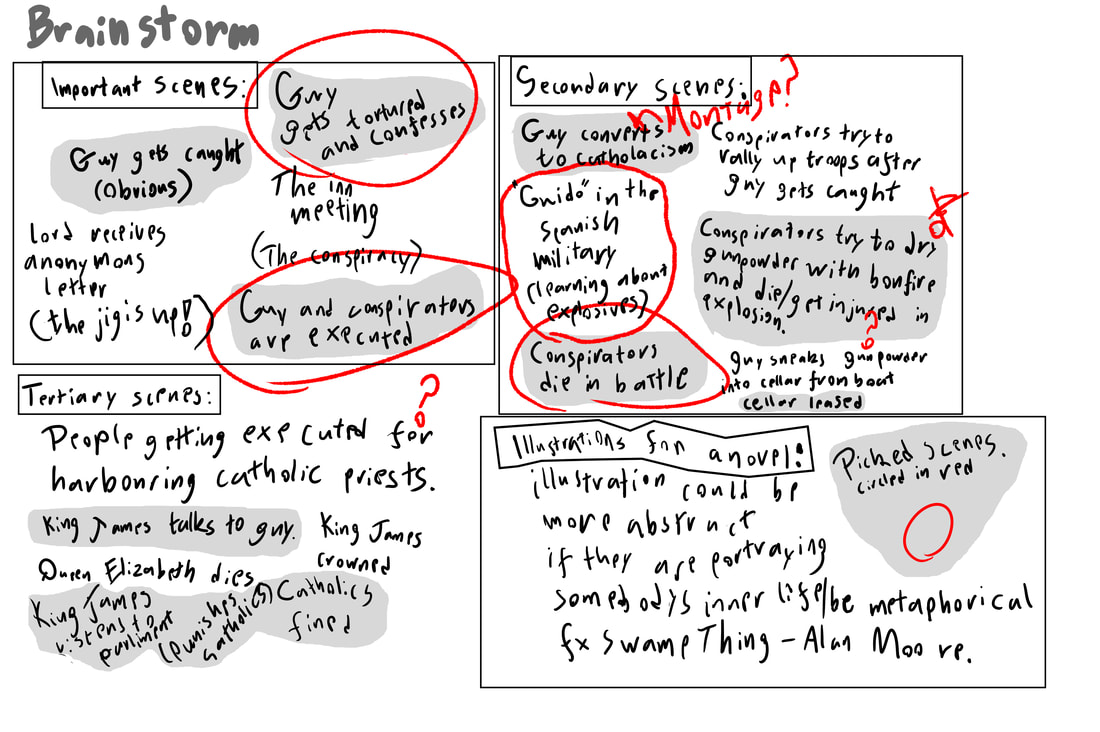 Brainstorm
Important scenes:
Guy
gets tortured
and confesses
Guy gets caught
(obvious)
The inn
meeting
(The conspiracy)
Lord receives
anonymous
letter
(the jig is up!)
Guy and conspirators
are executed
Secondary scenes:
Montage?
Guy converts
to catholacism
Conspirators try to
rally up troops after
guy gets caught
"Guido" in the
Spanish
military
(learning about
explosives)
Conspirators try to dry
gunpowder with bonfire
and die/get injured in
explosion.
Conspirators
die in battle
?
guy sneaks gunpowder
into cellar from boat
cellar leased
Tertiary scenes:
?
People getting executed for
harbouring catholic priests.
King James talks to guy.
King James
crowned
Queen Elizabeth dies
King James
listens to
parliment
(punishes
catholics)
Catholics
fined
Illustrations for a novel!
illustration could be
more abstract
if they are portraying
somebodys inner life/be metaphorical
fx swampThing - Alan Moore.
Picked scenes.
circled in red